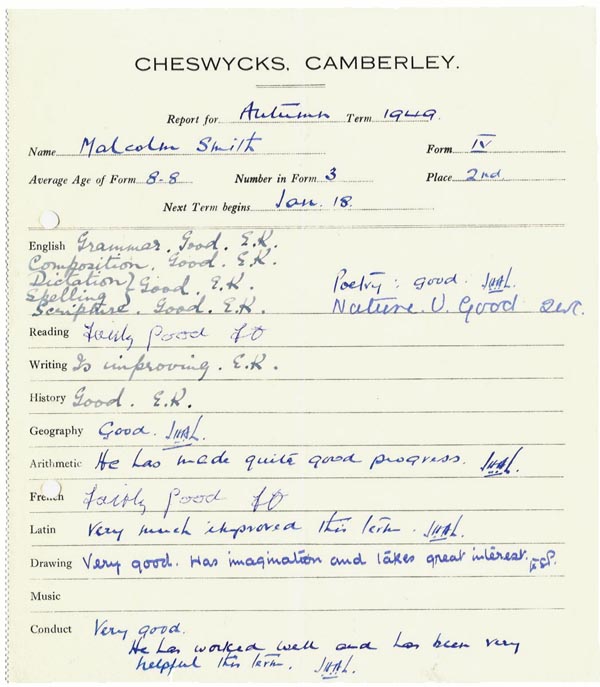 CHESWYCKS, CAMBERLEY.
Report for Autumn Term 1949.
Name Malcolm Smith Form IV
Average Age of Form 8-8 Number in Form 3 Place 2nd.
Next Term begins Jan. 18.
English Grammar. Good. E.K.
Composition. Good. E.K.
Dictation } Good. E.K.
Spelling
Poetry: good. J.H.A.L.
Scripture. Good. E.K. Nature V. Good
Reading Fairly Good
Writing Is improving. E.K.
History Good. E.K.
Geography Good. J.H.A.L.
Arithmetic He has made quite good progress. J.H.A.L.
French Fairly good
Latin Very much improved this term. J.H.A.L.
Drawing Very good. Has imagination and takes great interest.
Music
Conduct Very good.
He has worked well and has been very
helpful this term. J.H.A.L.